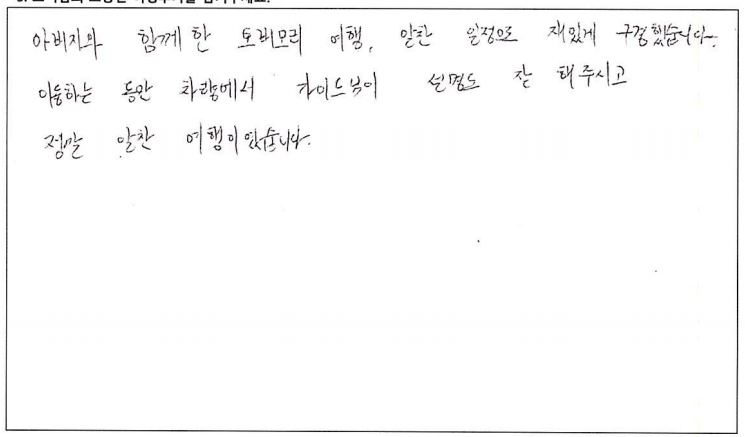 아버지와 함께 한 토버모리 여행, 알찬 일정으로 재있게 구경했습니다.
이동하는 동안 차량에서 가이드분이 설명도 잘 해주시고
정말 알찬 여행이었습니다.